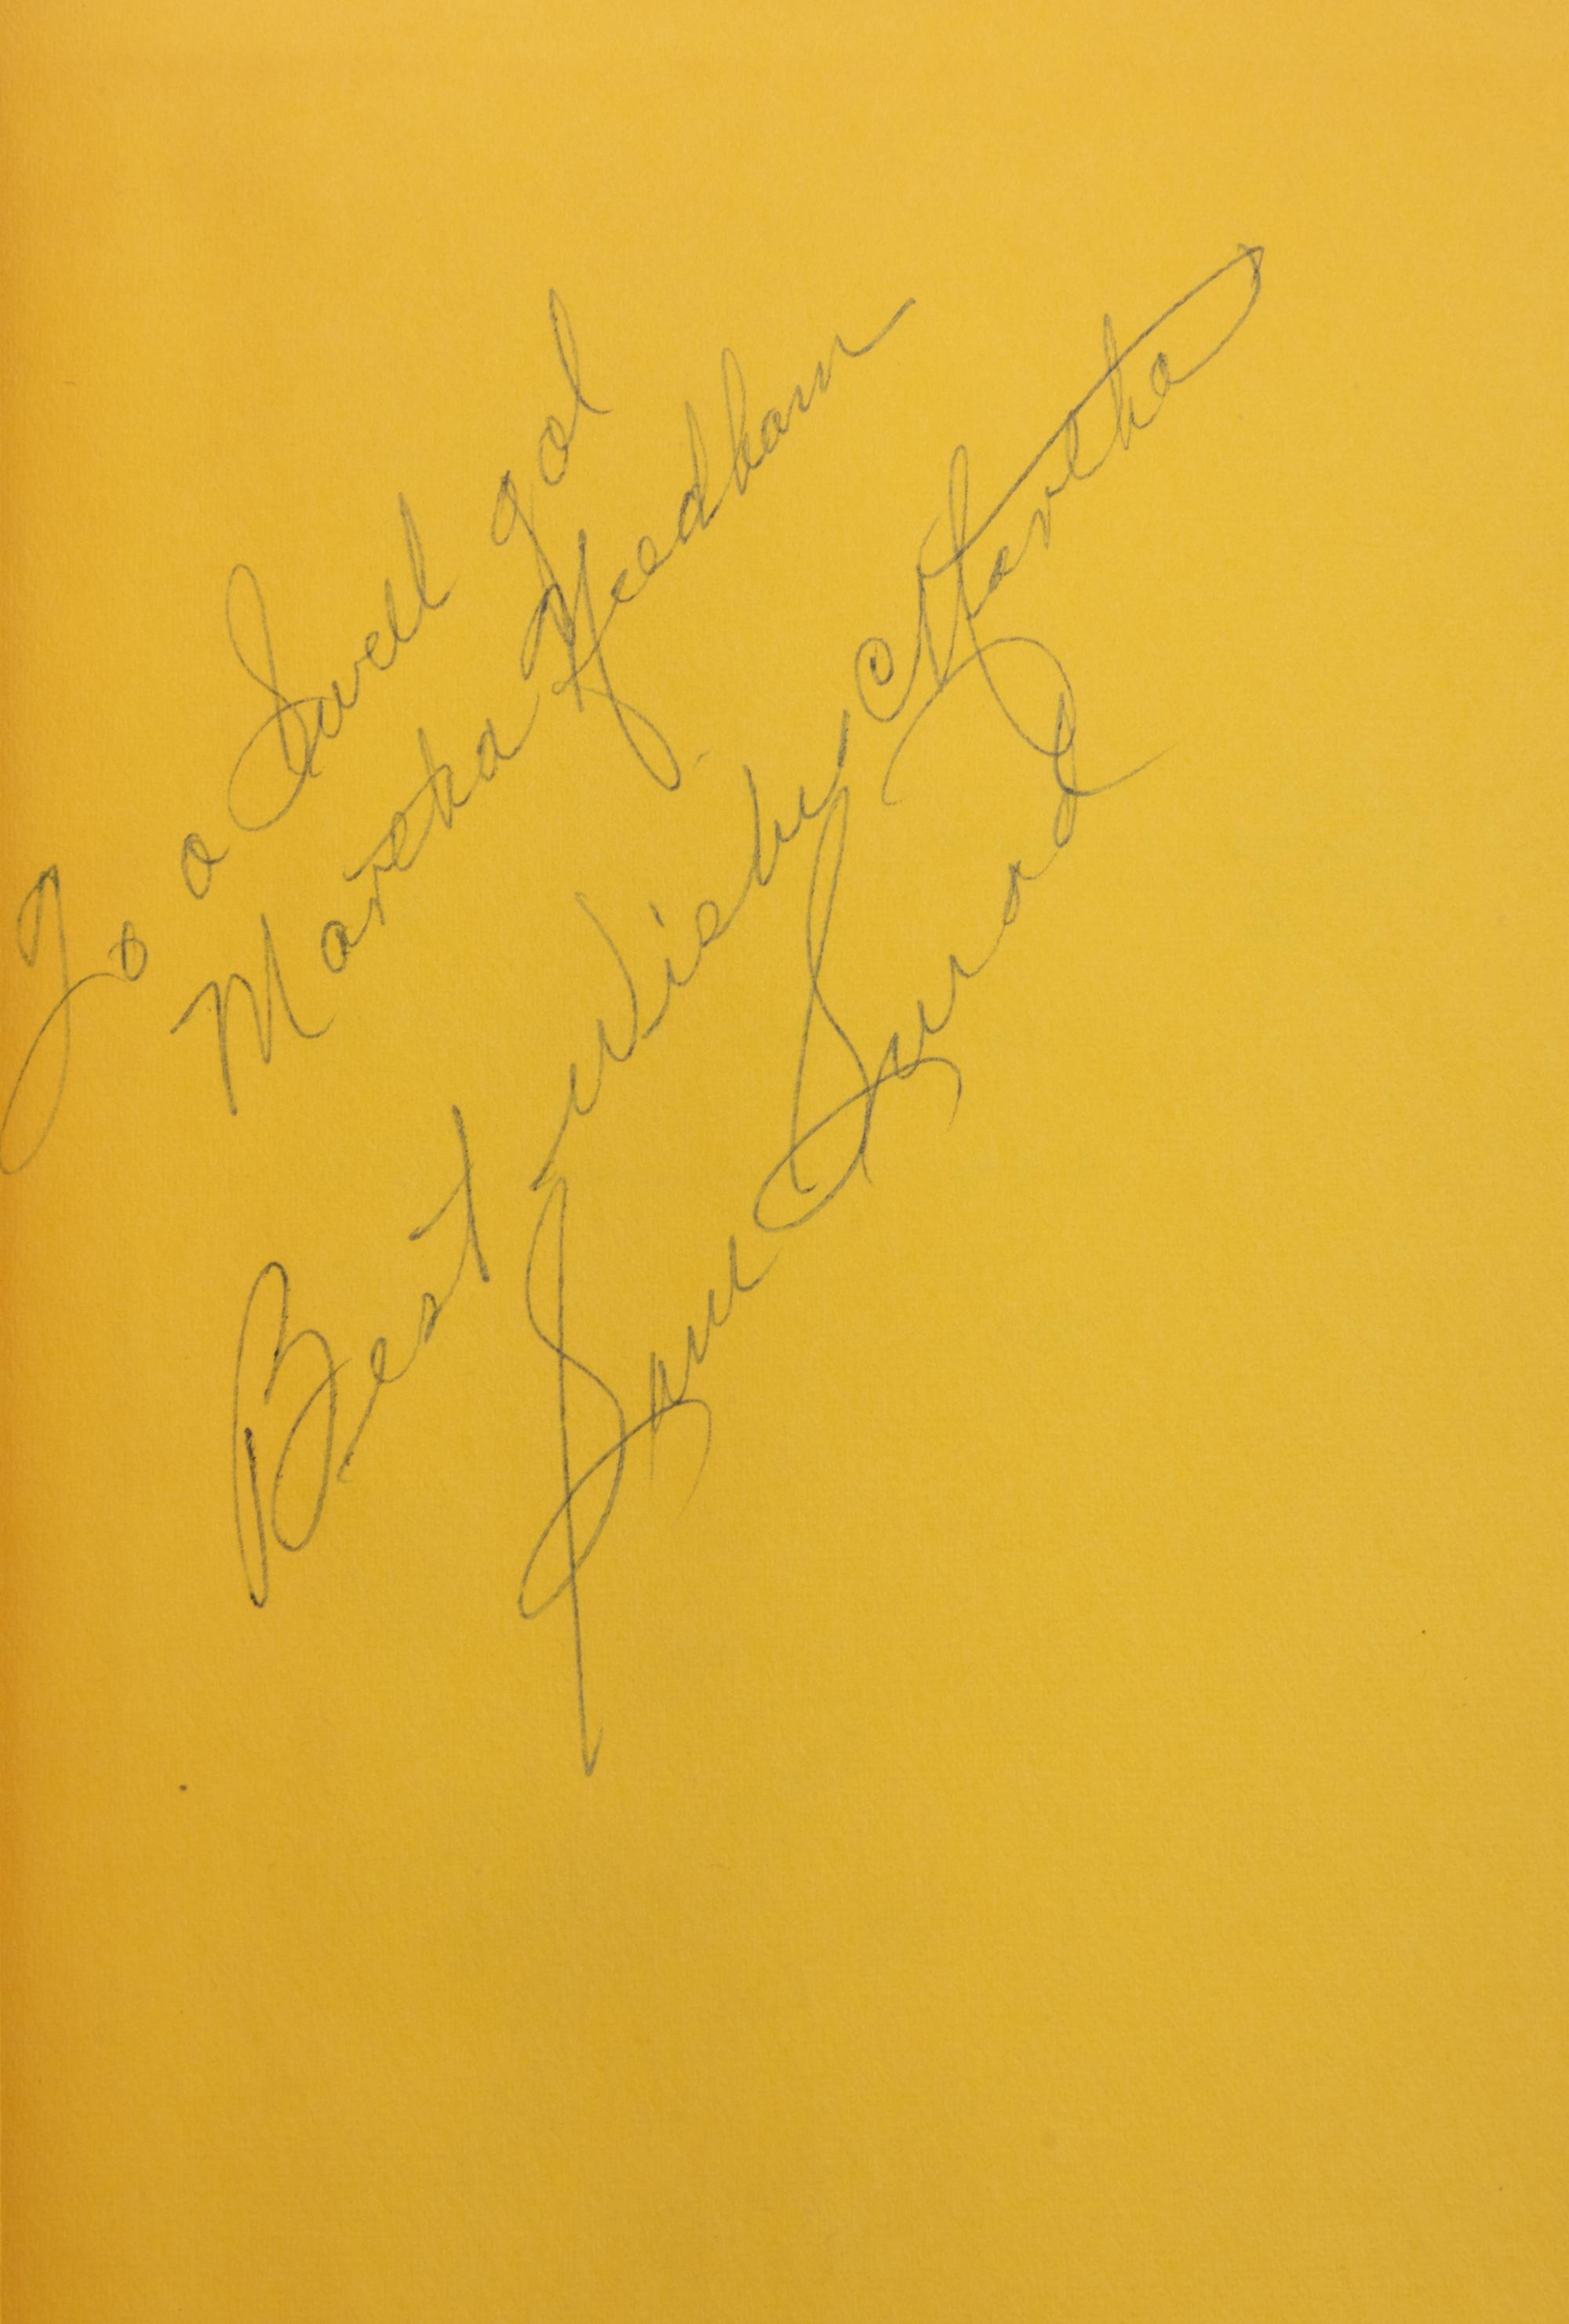 To a Swell gal
Martha Needham
Best Wishes Martha
Sam Snead